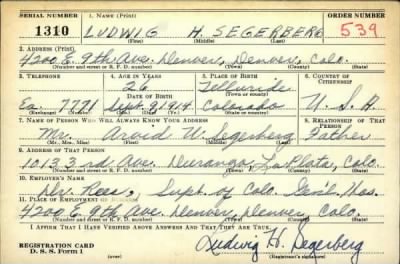 SERIAL NUMBER 1. NAME (Print) ORDER NUMBER
1310 LUDWIG H. SEGERBERG 539
(First) (Middle) (Last)
2. ADDRESS (Print)
4200 E. 9th Ave. Denver, Denver, Colo.
(Number and street or R. F. D. number) (Town) (County) (State)
3. TELEPHONE 4. AGE IN YEARS 5. PLACE OF BIRTH 6. COUNTRY OF CITIZENSHIP
26 Telluride
DATE OF BIRTH
Ea. 7771 Sept. 9, 1914 Colorado U. S. A.
(Exchange) (Number) (Mo.) (Day) (Yr.) (State or country)
7. NAME OF PERSON WHO WILL ALWAYS KNOW YOUR ADDRESS 8. RELATIONSHIP OF THAT PERSON
Mr. Arvid W. Segerberg Father
(Mr., Mrs., Miss) (First) (Middle) (Last)
9. ADDRESS OF THAT PERSON
1013 3rd Ave. Durango, La Plata, Colo.
(Number and street or R. F. D. number) (Town) (County) (State)
10. EMPLOYER'S NAME
Dr. Rees, Supt. of Colo. Genl. Hos.
11. PLACE OF EMPLOYMENT OR BUSINESS
4200 E. 9th Ave. Denver, Denver, Colo.
(Number and street or R. F. D. number) (Town) (County) (State)
I AFFIRM THAT I HAVE VERIFIED ABOVE ANSWERS AND THAT THEY ARE TRUE.
REGISTRATION CARD Ludwig H. Segerberg
D. S. S. Form 1 (over) (Registrant's signature)